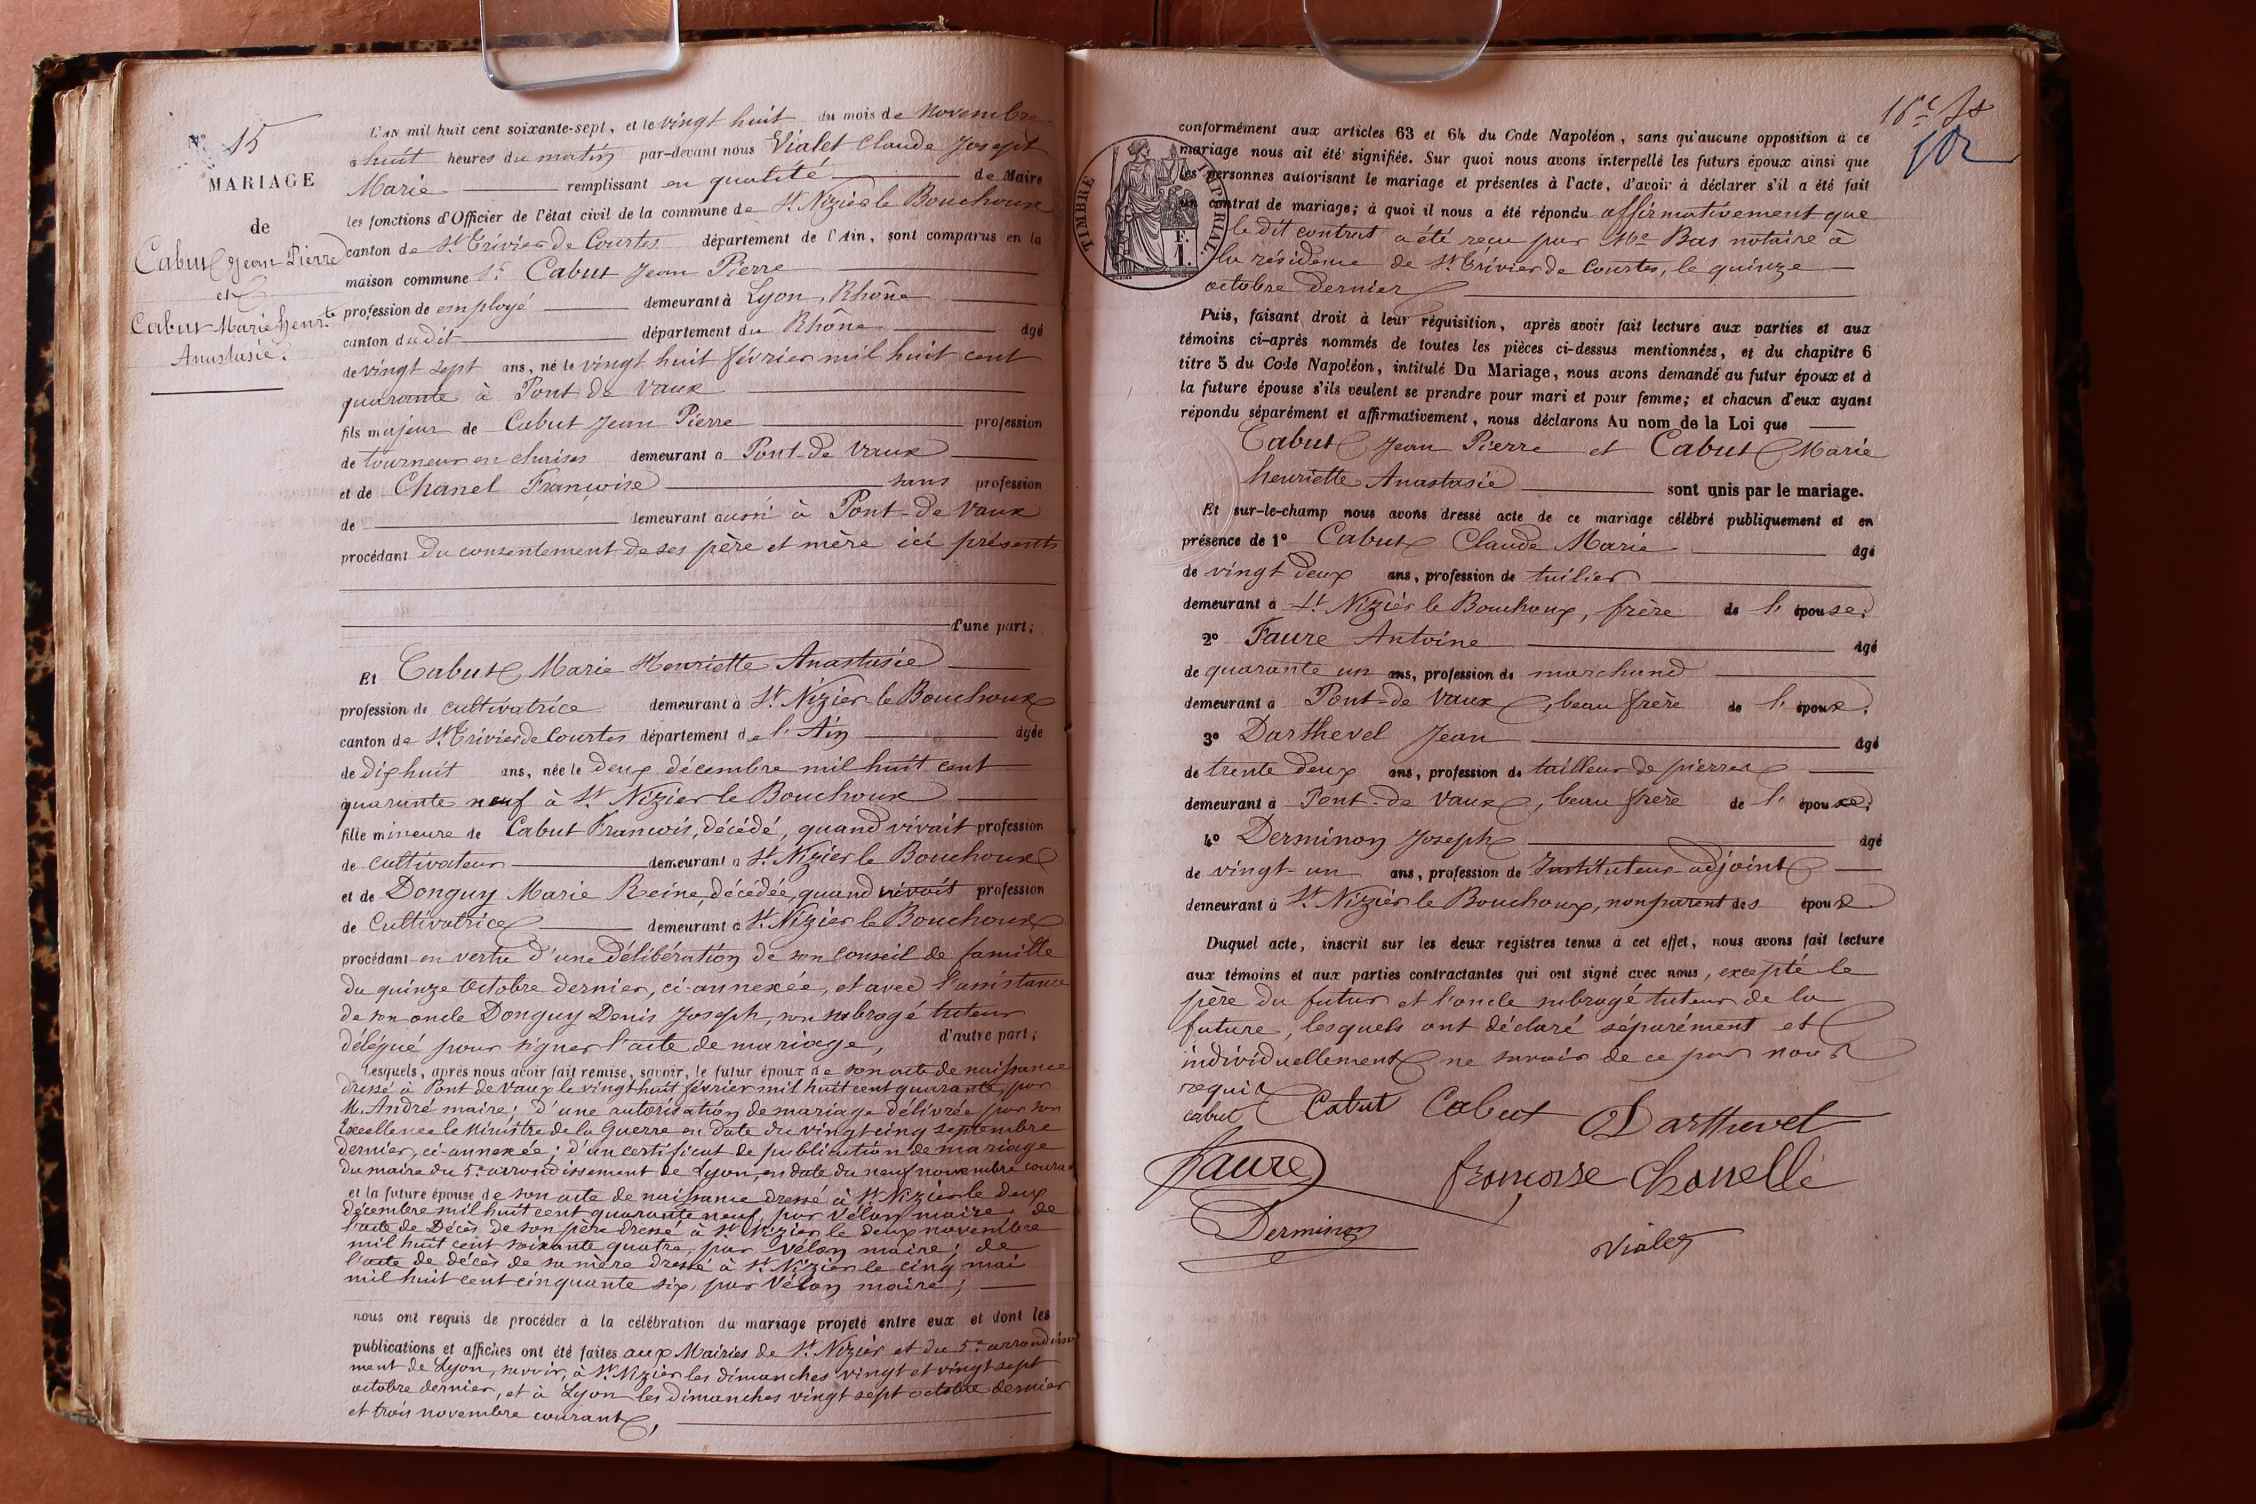 N° 15
MARIAGE
de
Cabut Jean Pierre
et
Cabut Marie henr.te
Anastasie.
L'AN mil huit cent soixante-sept, et le vingt huit du mois de Novembre
à huit heures du matin par-devant nous Vialet Claude Joseph
Marie remplissant en qualité de Maire
les fonctions d'Officier de l'état civil de la commune de St Nizier le Bouchoux
canton de St Trivier de Courtes département de l'Ain, sont comparus en la
maison commune Sr Cabut Jean Pierre
profession de employé demeurant à Lyon, Rhône
canton dudit département du Rhône âgé
de vingt sept ans, né le vingt huit février mil huit cent
quarante à Pont de Vaux
fils majeur de Cabut Jean Pierre profession
de tourneur en chaises demeurant à Pont-de Vaux
et de Chanel Françoise sans profession
de demeurant aussi à Pont-de Vaux
procédant du consentement de ses père et mère ici présents
d'une part;
Et Cabut Marie Henriette Anastasie
profession de cultivatrice demeurant à St Nizier le Bouchoux
canton de St Trivier de Courtes département de l'Ain âgée
de dix huit ans, née le deux décembre mil huit cent
quarante neuf à St Nizier le Bouchoux
fille mineure de Cabut François, décédé, quand vivait profession
de cultivateur demeurant à St Nizier le Bouchoux
et de Donguy Marie Reine, décédée, quand vivait profession
de Cultivatrice demeurant à St Nizier le Bouchoux
procédant en vertu d'une délibération de son conseil de famille
du quinze Octobre dernier, ci-annexée, et avec l'assistance
de son oncle Donguy Denis Joseph, son subrogé tuteur
délégué pour signer l'acte de mariage, d'autre part;
Lesquels, après nous avoir fait remise, savoir, le futur époux de son acte de naissance
dressé à Pont de Vaux le vingt huit février mil huit cent quarante, par
M. André maire; d'une autorisation de mariage délivrée par son
Excellence le Ministre de la Guerre en date du vingt cinq septembre
dernier, ci-annexée; d'un certificat de publication de mariage
du maire du 5e arrondissement de Lyon, en date du neuf novembre courant
et la future épouse de son acte de naissance dressé à St Nizier le deux
décembre mil huit cent quarante neuf, par Vélon maire, de
l'acte de Décès de son père dressé à St Nizier le deux novembre
mil huit cent soixante quatre, par Vélon maire; de
l'acte de décès de sa mère dressé à St Nizier le cinq mai
mil huit cent cinquante six, par Vélon maire;
nous ont requis de procéder à la célébration du mariage projeté entre eux et dont les
publications et affiches ont été faites aux Mairies de St Nizier et du 5e arrondisse
ment de Lyon, savoir, à St Nizier les dimanches vingt et vingt sept
octobre dernier, et à Lyon les dimanches vingt sept octobre dernier
et trois novembre courant,
102
TIMBRE IMPÉRIAL
F.
1.
conformément aux articles 63 et 64 du Code Napoléon, sans qu'aucune opposition à ce
mariage nous ait été signifiée. Sur quoi nous avons interpellé les futurs époux ainsi que
les personnes autorisant le mariage et présentes à l'acte, d'avoir à déclarer s'il a été fait
un contrat de mariage; à quoi il nous a été répondu affirmativement que
le dit contrat a été reçu par Me Bas notaire à
la résidence de St Trivier de Courtes, le quinze
octobre dernier
Puis, faisant droit à leur réquisition, après avoir fait lecture aux parties et aux
témoins ci-après nommés de toutes les pièces ci-dessus mentionnées, et du chapitre 6
titre 5 du Code Napoléon, intitulé Du Mariage, nous avons demandé au futur époux et à
la future épouse s'ils veulent se prendre pour mari et pour femme; et chacun d'eux ayant
répondu séparément et affirmativement, nous déclarons Au nom de la Loi que
Cabut Jean Pierre et Cabut Marie
henriette Anastasie sont unis par le mariage.
Et sur-le-champ nous avons dressé acte de ce mariage célébré publiquement et en
présence de 1° Cabut Claude Marie âgé
de vingt deux ans, profession de tuilier
demeurant à St Nizier le Bouchoux, frère de l'épouse;
2° Faure Antoine âgé
de quarante un ans, profession de marchand
demeurant à Pont-de Vaux, beau frère de l'époux;
3° Darthevel Jean âgé
de trente deux ans, profession de tailleur de pierres
demeurant à Pont-de Vaux, beau frère de l'époux;
4° Derminon Joseph âgé
de vingt-un ans, profession de Instituteur-adjoint
demeurant à St Nizier le Bouchoux, non parent des époux
Duquel acte, inscrit sur les deux registres tenus à cet effet, nous avons fait lecture
aux témoins et aux parties contractantes qui ont signé avec nous, excepté le
père du futur et l'oncle subrogé tuteur de la
future, lesquels ont déclaré séparément et
individuellement ne savoir de ce par nous
requis
cabut Cabut Cabut Darthevel
Faure françoise Chanelle
Derminon
Vialet